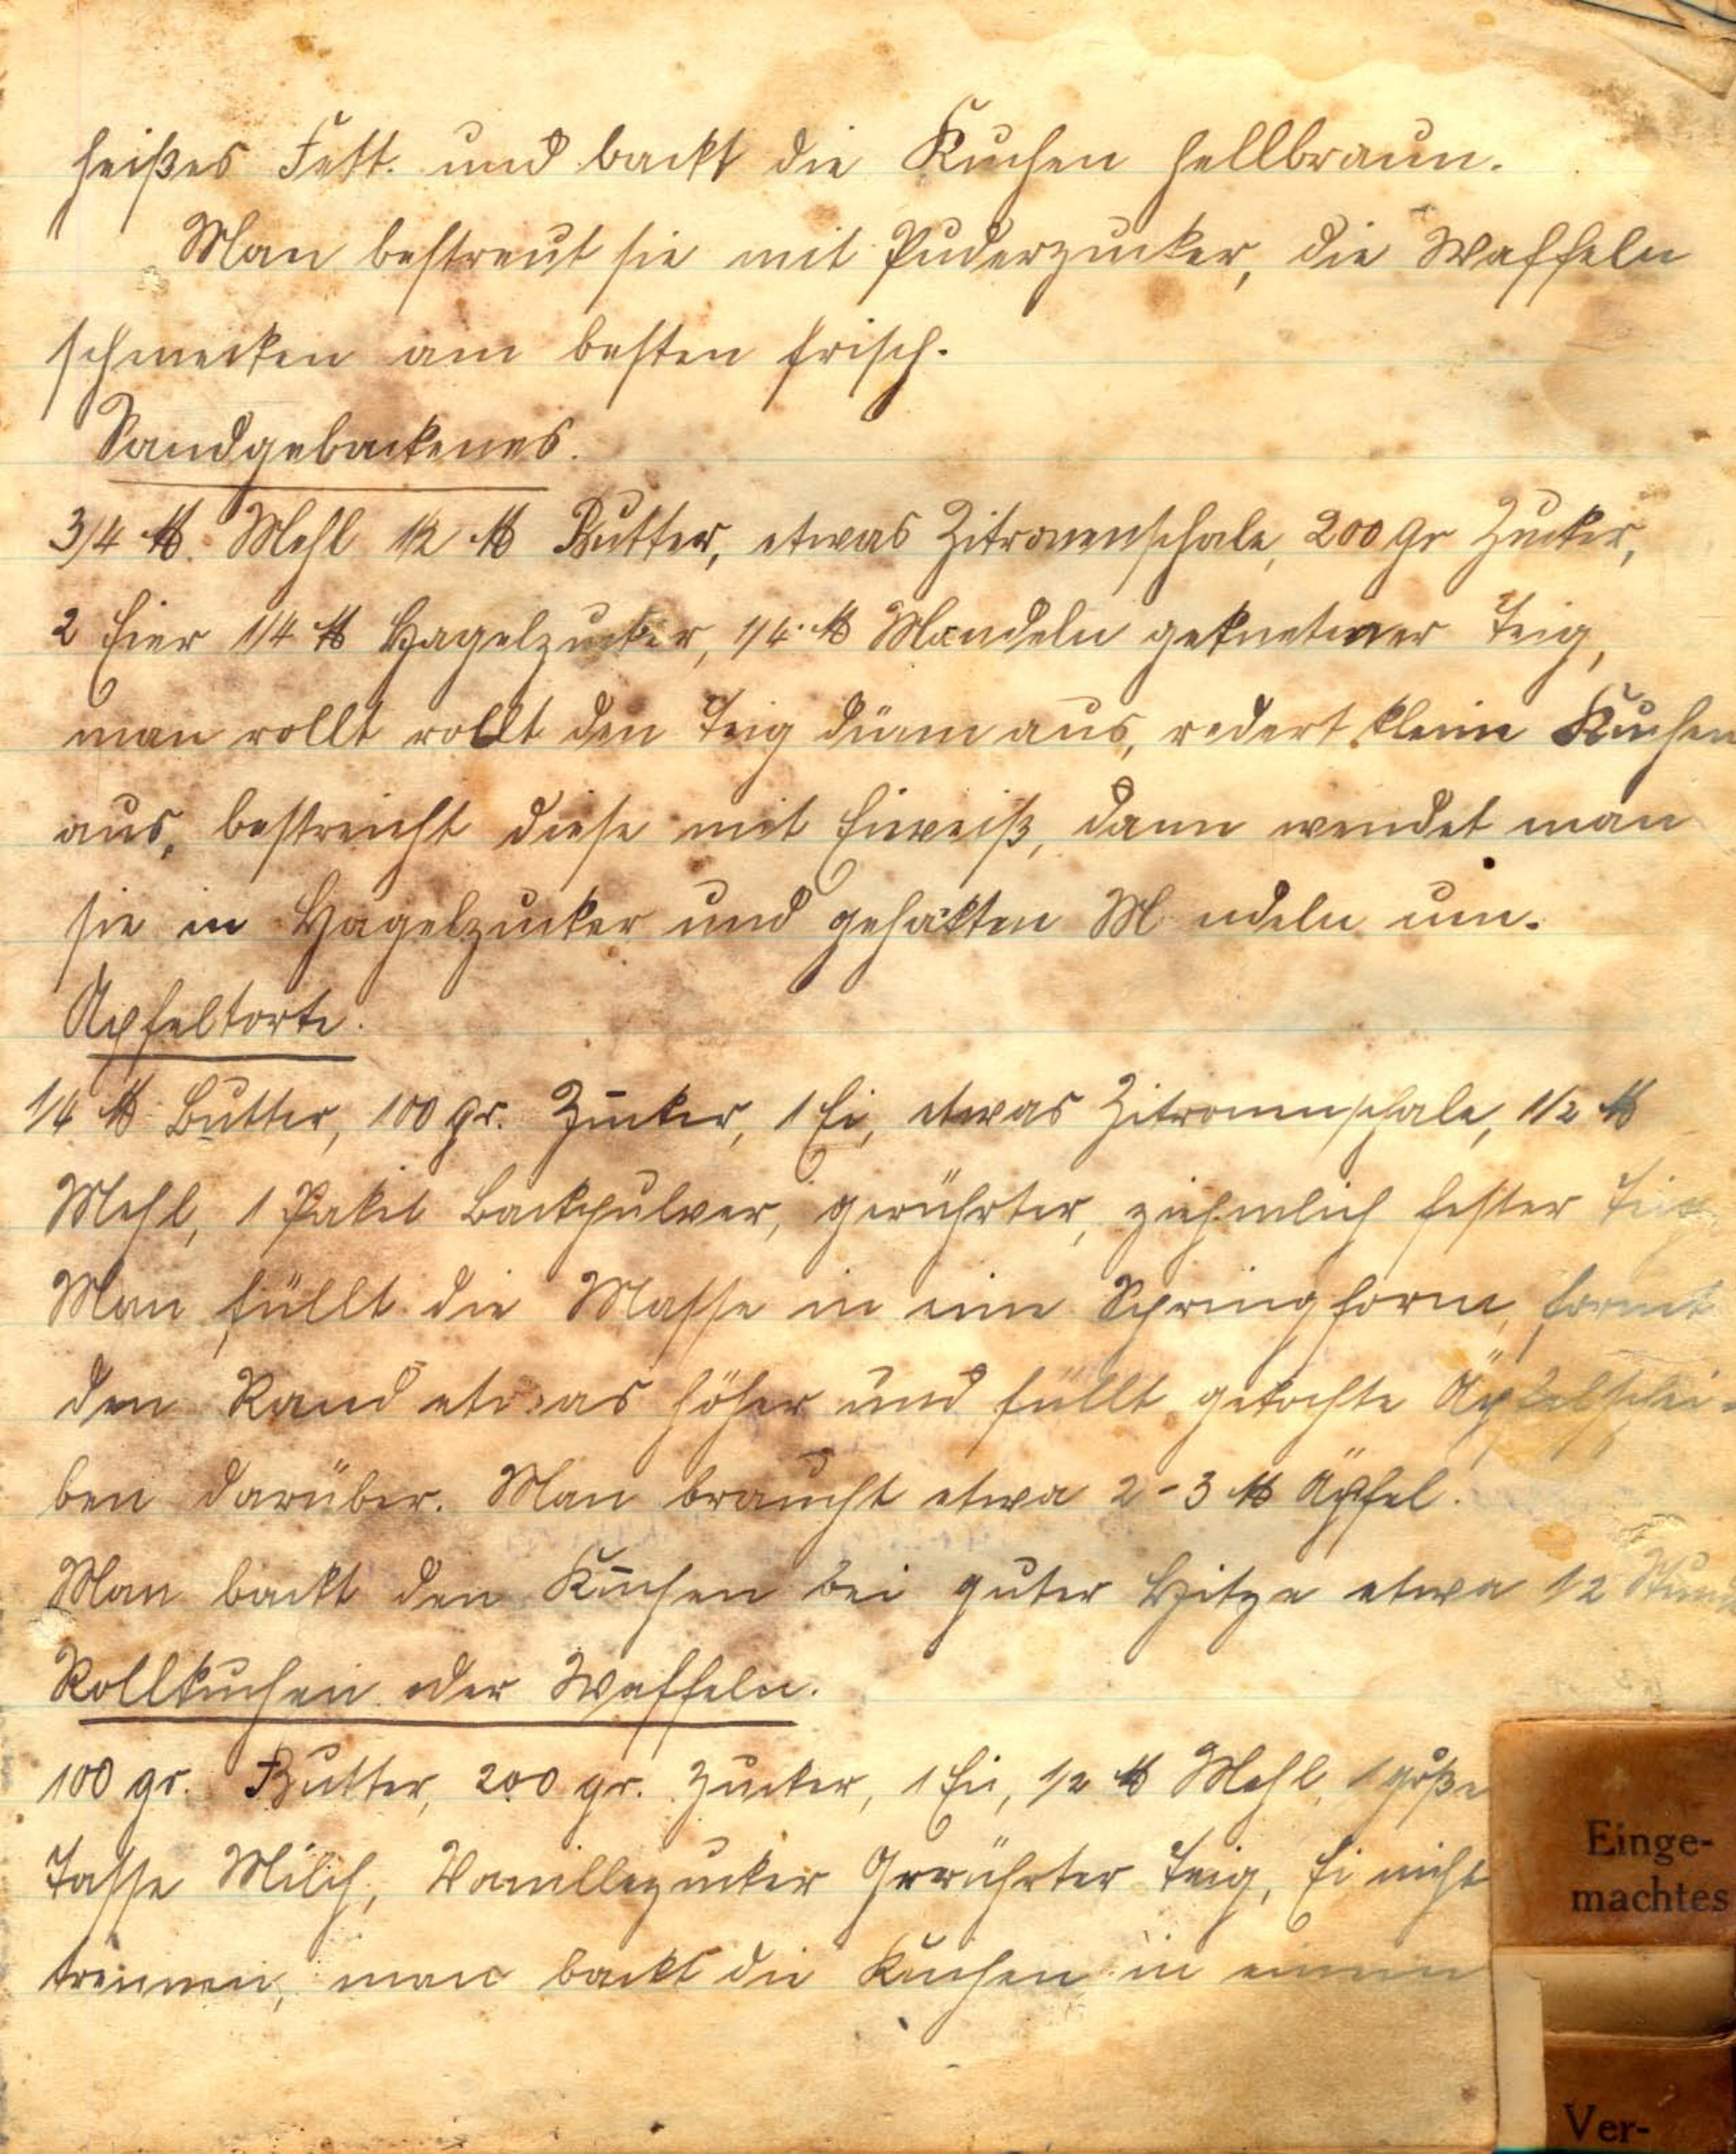 heißes Fett. und backt die Kuchen hellbraun.
Man bestreut sie mit Puderzucker, die Waffeln
schmecken am besten frisch.
Sandgebackenes.
3/4 ℔. Mehl 1/2 ℔ Butter, etwas Zitronenschale, 200 gr Zucker,
2 Eier 1/4 ℔ Hagelzucker, 1/4 ℔ Mandeln gekneteter Teig,
man rollt rollt den Teig dünn aus, redert kleine Kuchen
aus, bestreicht diese mit Eiweiß, dann wendet man
sie in Hagelzucker und gehakten M ndeln um.
Apfeltorte.
1/4 ℔ Butter, 100 gr. Zucker, 1 Ei, etwas Zitronenschale, 1/2 ℔
Mehl, 1 Paket Backpulver, gerührter, ziehmlich fester Teig.
Man füllt die Masse in eine Springform, formt
den Rand etwas höher und füllt gekochte Apfelschei-
ben darüber. Man braucht etwa 2-3 ℔ Äpfel.
Man backt den Kuchen bei guter Hitze etwa 1/2 Stun
Rollkuchen oder Waffeln.
100 gr. Butter, 200 gr. Zucker, 1 Ei, 1/2 ℔ Mehl, 1 große
Tasse Milch, Vanillezucker Gerührter Teig, Ei nicht
trennen, man backt die Kuchen in einem
Einge-
machtes
Ver-